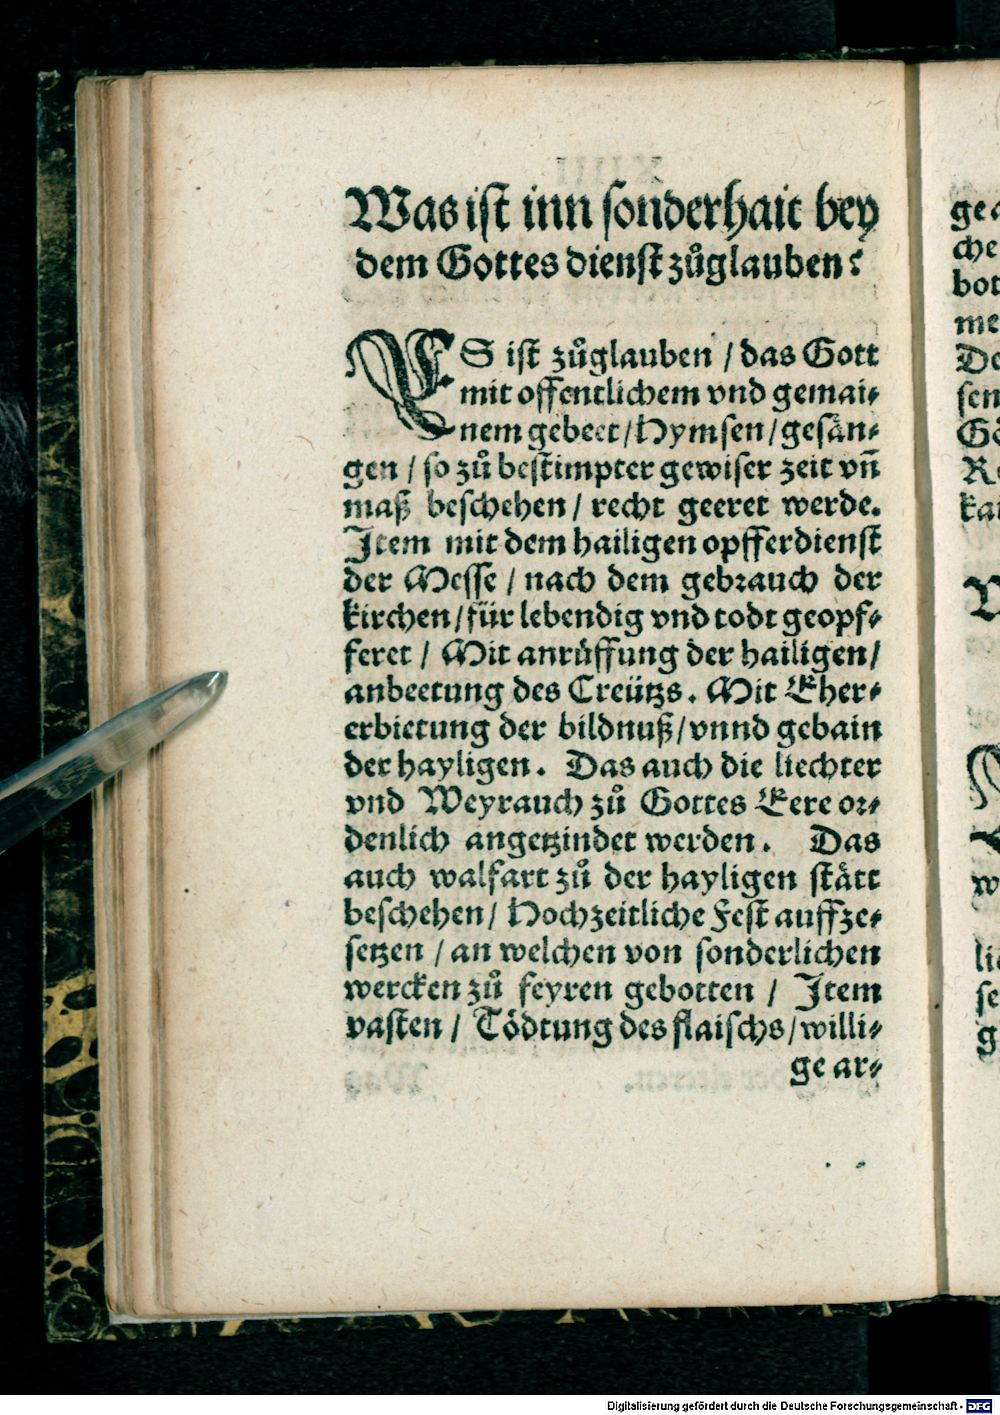 Was ist inn sonderhait bey
dem Gottes dienst zůglauben?
ES ist zůglauben / das Gott
mit offentlichem vnd gemai⸗
nem gebeet / Hymsen / gesän⸗
gen / so zů bestimpter gewiser zeit vñ
maß beschehen / recht geeret werde.
Item mit dem hailigen opfferdienst
der Messe / nach dem gebrauch der
kirchen / für lebendig vnd todt geopf⸗
feret / Mit anrüffung der hailigen /
anbeetung des Creützs. Mit Eher⸗
erbietung der bildnuß / vnnd gebain
der hayligen. Das auch die liechter
vnd Weyrauch zů Gottes Eere or⸗
denlich angetzindet werden. Das
auch walfart zů der hayligen stätt
beschehen / Hochzeitliche Fest auffze⸗
setzen / an welchen von sonderlichen
wercken zů feyren gebotten / Item
vasten / Tödtung des flaischs / willi⸗
ge ar⸗
gea
che
bot
me
De
sen
Gö
Re
kat
w
lic
se
g
Digitalisierung gefördert durch die Deutsche Forschungsgemeinschaft - DFG